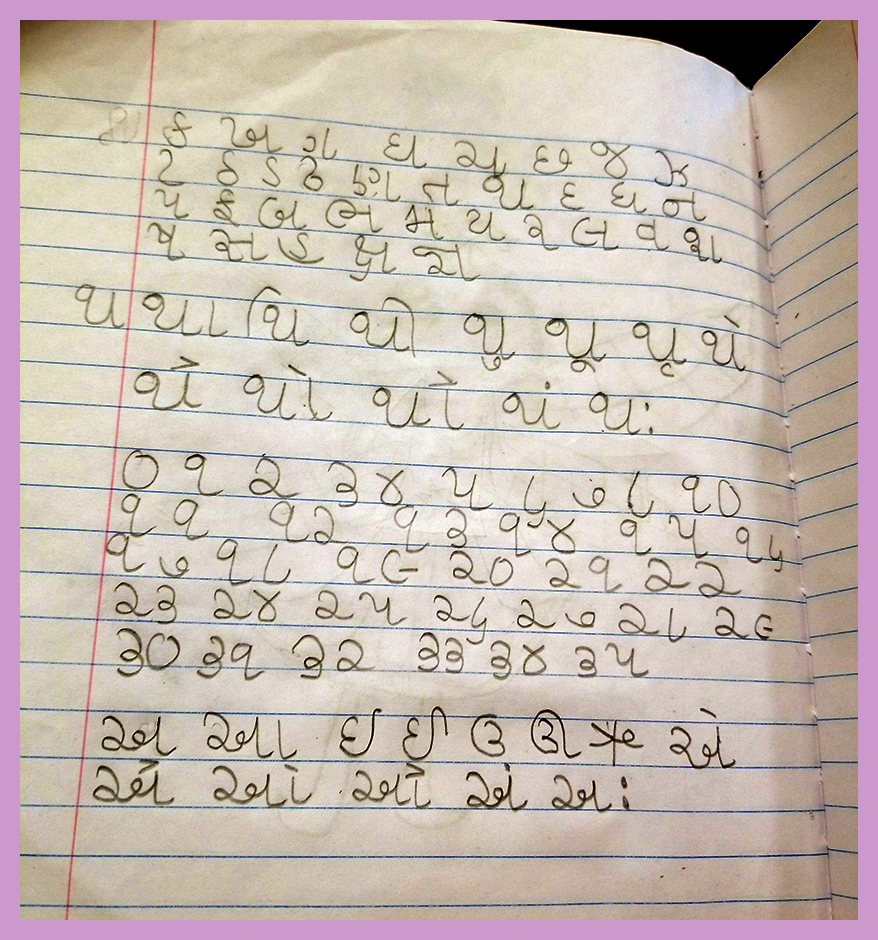 ક ખ ગ ઘ ચ છ જ ઝ
ટ ઠ ડ ઢ ણ ત થ દ ધ ન
પ ફ બ ભ મ ય ર લ વ શ
ષ સ હ ક્ષ જ્ઞ
થ થા થિ થી થુ થૂ થૃ થે
થૈ થો થૌ થં થઃ
૦ ૧ ૨ ૩ ૪ ૫ ૬ ૭ ૮ ૧૦
૧૧ ૧૨ ૧૩ ૧૪ ૧૫ ૧૬
૧૭ ૧૮ ૧૯ ૨૦ ૨૧ ૨૨
૨૩ ૨૪ ૨૫ ૨૬ ૨૭ ૨૮ ૨૯
૩૦ ૩૧ ૩૨ ૩૩ ૩૪ ૩૫
અ આ ઇ ઈ ઉ ઊ ઋ એ
ઐ ઓ ઔ અં અઃ